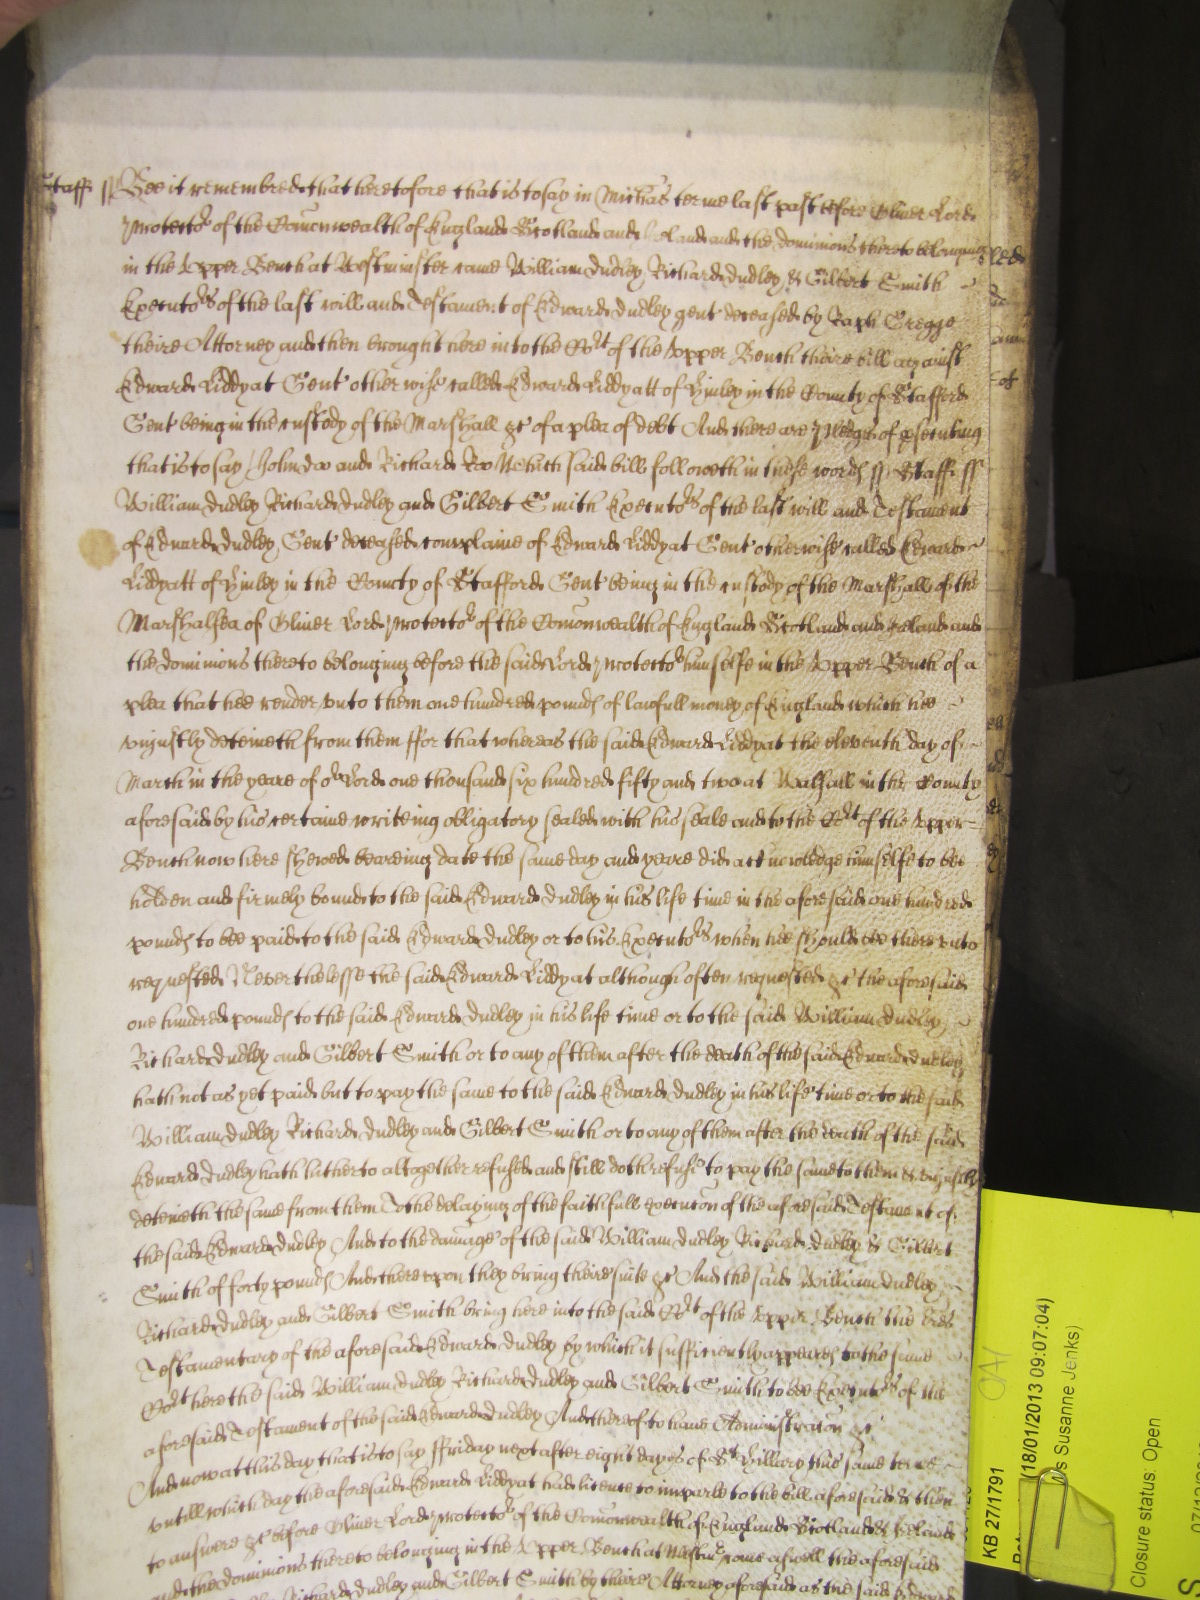 Staff ss Bee it remembred that heretofore that is to say in Michas terme last past before Oliver Lord
Protector of the Comonwealth of England Scotland and Ireland and the dominions thereto belonging
in the Upper Bench at Westminster came William Dudley Richard Dudley & Gilbert Smith
Executors of the last will and Testament of Edward Dudley gent deceased by Raph Gregge
theire Attorney and then brought here into the Cort of the Upper Bench theire bill against
Edward Liddyat Gent otherwise called Edward Liddyatt of Himley in the County of Stafford
Gent being in the custody of the Marshall &c of a plea of debt And there are pledges of prsecuting
that is to say John Doo and Richard Roo Which said bill followeth in these words ss Staff ss
William Dudley Richard Dudley and Gilbert Smith Executors of the last will and Testament
of Edward Dudley Gent deceased complaine of Edward Liddyat Gent otherwise called Edward
Liddyatt of Himley in the County of Stafford Gent being in the custody of the Marshall of the
Marshalsea of Oliver Lord Protector of the Comonwealth of England Scotland and Ireland and
the dominions thereto belonging before the said Lord Protector himselfe in the Upper Bench of a
plea that hee render unto them one hundred pounds of lawfull money of England which hee
uniustly deteineth from them ffor that whereas the said Edward Liddyat the eleventh day of
March in the yeare of or Lord one thousand six hundred fifty and two at Walsall in the County
aforesaid by his certaine writeing obligatory sealed with his seale and to the Cort of the Upper
Bench now here shewed beareing date the same day and yeare did acknowledge himselfe to bee
holden and firmely bound to the said Edward Dudley in his life time in the aforesaid one hundred
pounds to bee paid to the said Edward Dudley or to his Executors when hee should bee thereunto
requested Neverthelesse the said Edward Liddyat although often requested &c the aforesaid
one hundred pounds to the said Edward Dudley in his life time or to the said William Dudley
Richard Dudley and Gilbert Smith or to any of them after the death of the said Edward Dudley
hath not as yet paid but to pay the same to the said Edward Dudley in his life time or to the said
William Dudley Richard Dudley and Gilbert Smith or to any of them after the death of the said
Edward Dudley hath hitherto altogether refused and still doth refuse to pay the same to them & uniustly
deteineth the same from them To the delaying of the faithfull execucon of the aforesaid Testament of
the said Edward Dudley And to the damage of the said William Dudley Richard Dudley & Gilbert
Smith of forty pounds And thereupon they bring theire suite &c And the said William Dudley
Richard Dudley and Gilbert Smith bring here into the said Cort of the Upper Bench the lres
Testamentary of the aforesaid Edward Dudley by which it sufficiently appeares to the same
Cort here the said William Dudley Richard Dudley and Gilbert Smith to bee Executors of the
aforesaid Testament of the said Edward Dudley And thereof to have Administracon &c
And now at this day that is to say ffriday next after eight dayes of St Hillary this same terme
untill which day the aforesaid Edward Liddyat had licence to imparle to the bill aforesaid & then
to answere &c before Oliver Lord Protector of the Comonwealth of England Scotland & Ireland
and the dominions thereto belonging in the Upper Bench at Westmr come aswell the aforesaid
Richard Dudley and Gilbert Smith by theire Attorney aforesaid as the said Edward
KB 27/1791
(18/01/2013 09:07:04)
s Susanne Jenks)
Closure status: Open